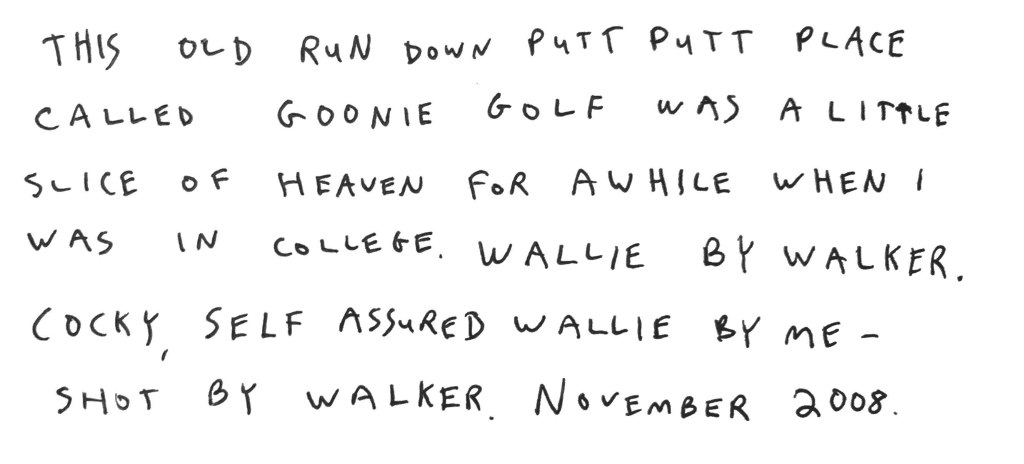 THIS OLD RUN DOWN PUTT PUTT PLACE
CALLED GOONIE GOLF WAS A LITTLE
SLICE OF HEAVEN FOR AWHILE WHEN I
WAS IN COLLEGE. WALLIE BY WALKER.
COCKY, SELF ASSURED WALLIE BY ME -
SHOT BY WALKER. NOVEMBER 2008.